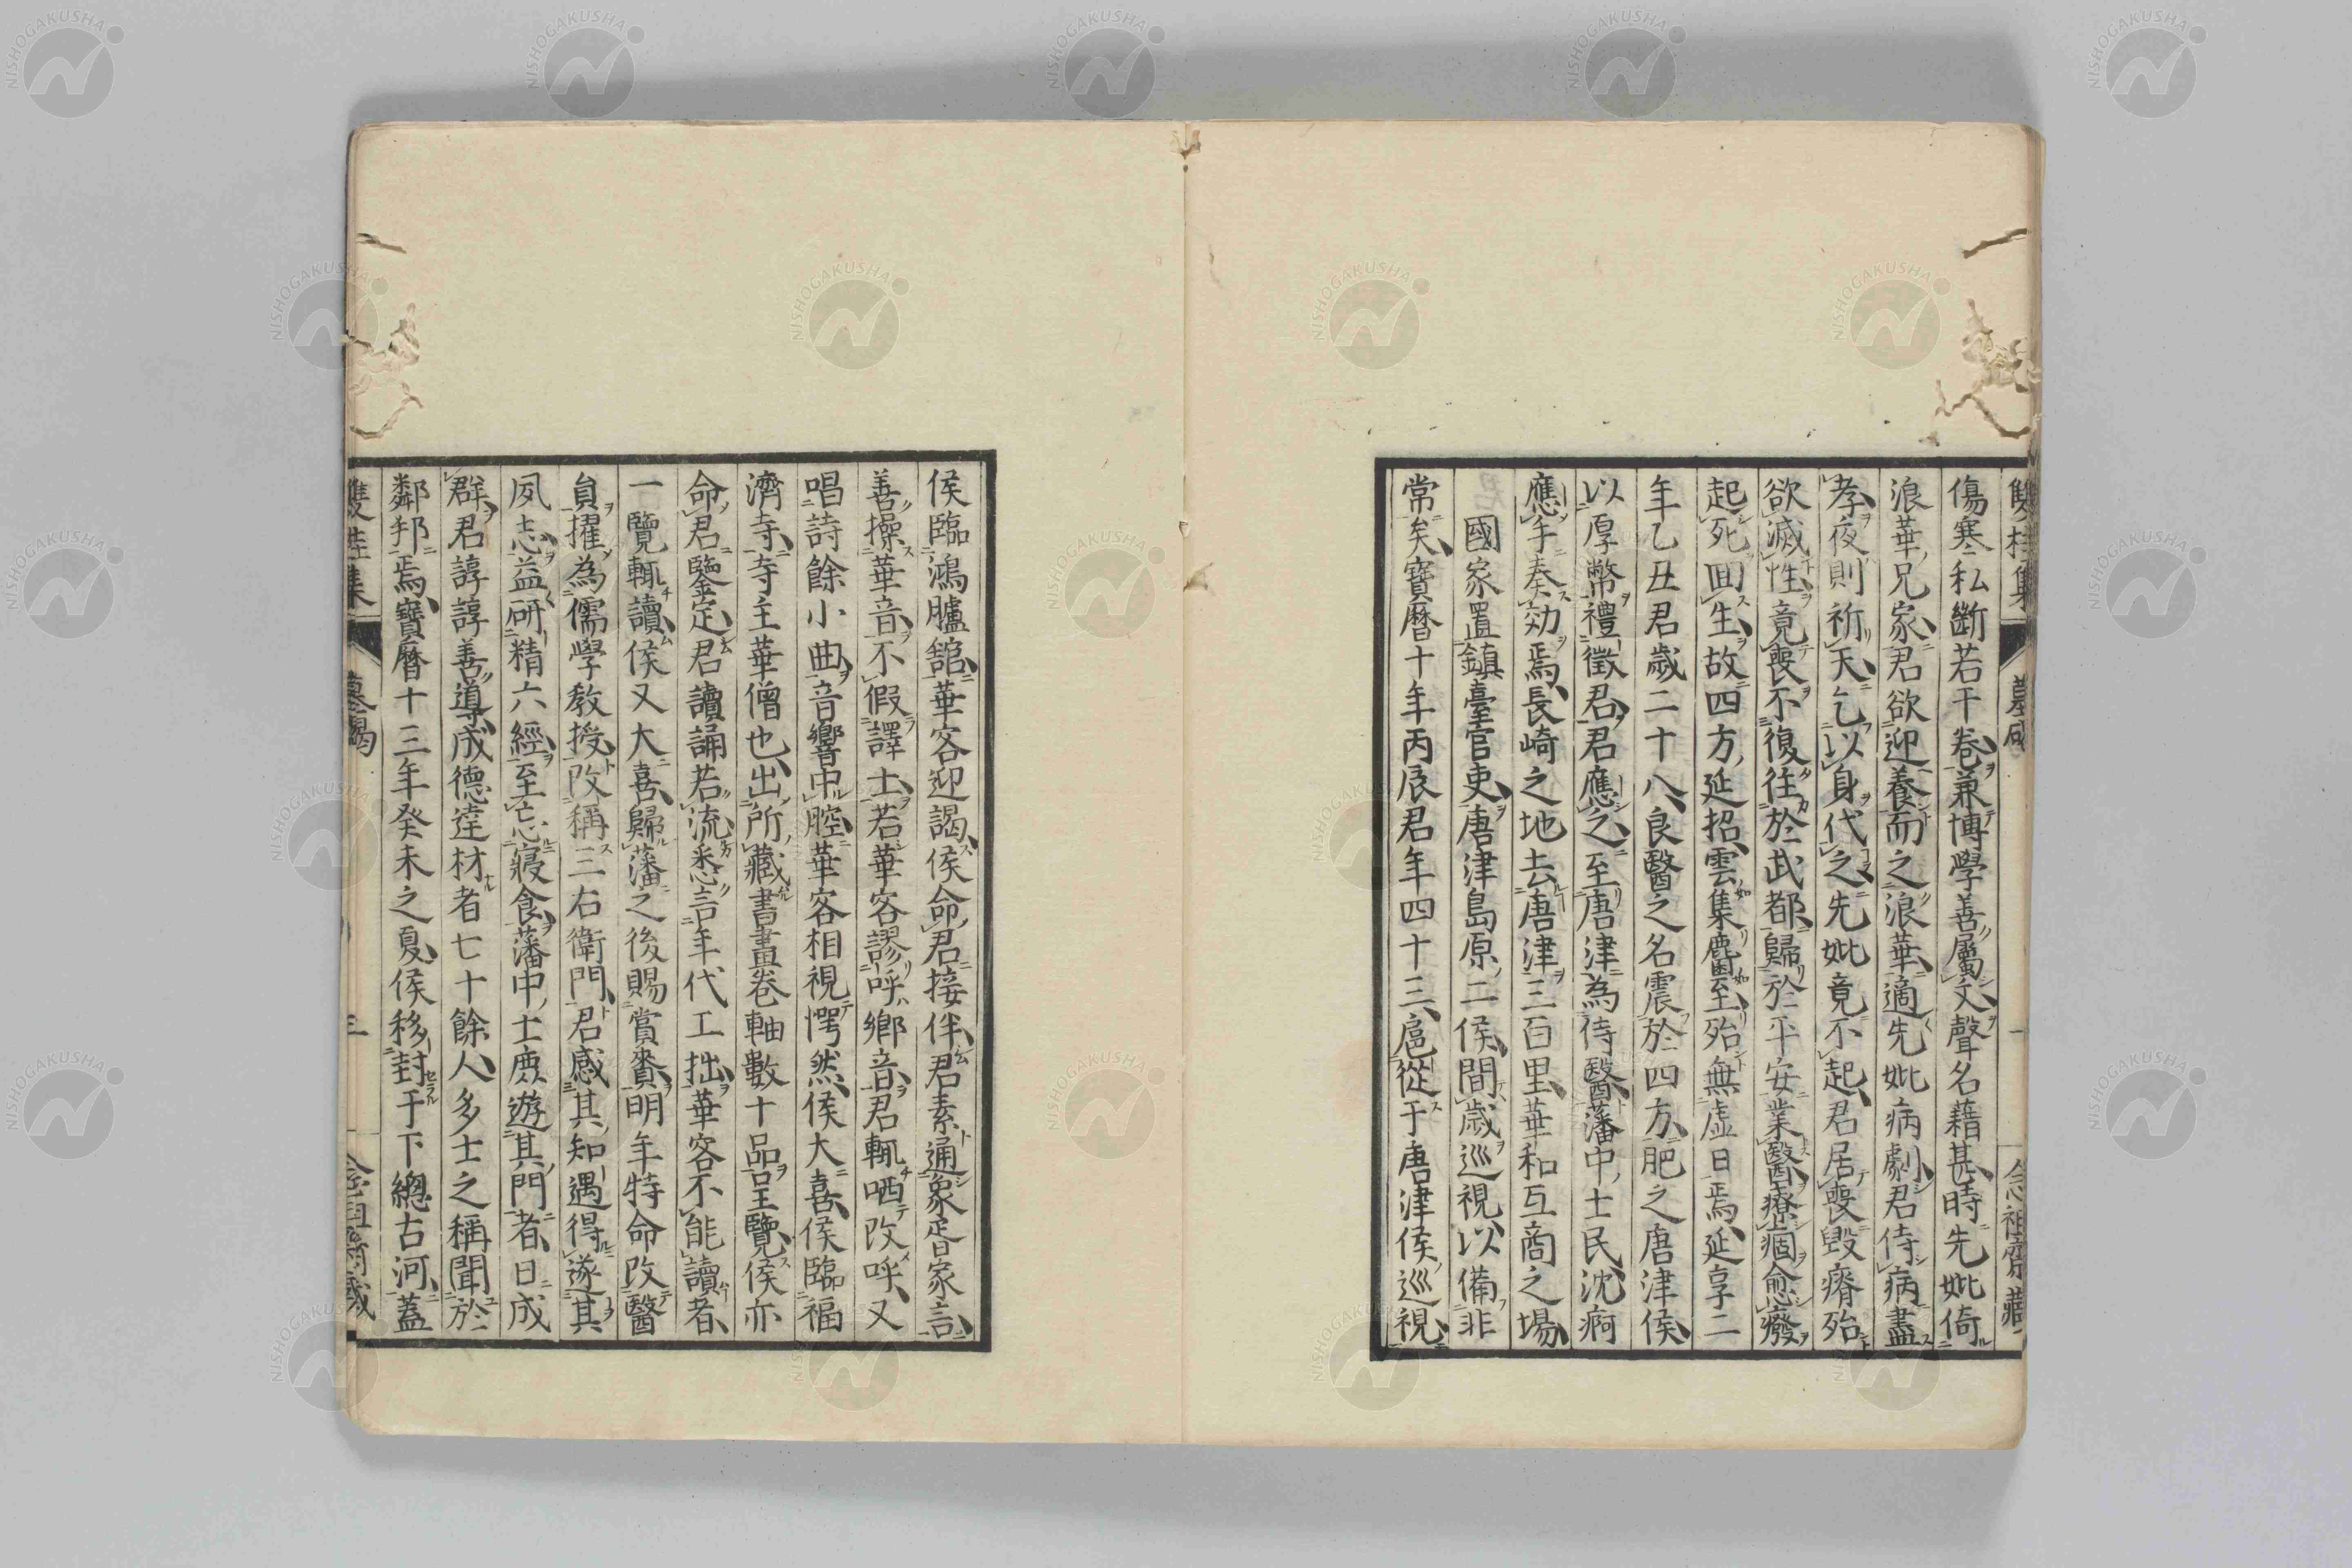 雙桂集 墓碣 二 念祖齋藏
傷寒私斷若干卷兼博學善屬文聲名藉甚時先妣倚
浪華兄家君欲迎養而之浪華適先妣病劇君侍病盡
孝夜則祈天乞以身代之先妣竟不起君居喪毀瘠殆
欲滅性竟喪不復往於武都歸於平安業醫療痼愈癈
起死回生故四方延招雲集麕至殆無虛日焉延享二
年乙丑君歲二十八良醫之名震於四方肥之唐津侯
以厚幣禮徵君君應之至唐津為侍醫藩中士民沈痾
應手奏效焉長崎之地去唐津三百里華和互商之場
國家置鎮臺官吏唐津島原二侯間歲巡視以備非
常矣寶曆十年丙辰君年四十三扈從于唐津侯巡視
侯臨鴻臚舘華客迎謁侯命君接伴君素通象胥家言
善操華音不假譯士若華客謬呼鄉音君輒哂改呼又
唱詩餘小曲音響中腔華客相視愕然侯大喜侯臨福
濟寺寺主華僧也出所藏書畫卷軸數十品呈覽侯亦
命君鑒定君讀誦若流悉言年代工拙華客不能讀者
一覽輒讀侯又大喜歸藩之後賜賞賚明年特命改醫
員擢為儒學教授改稱三右衛門君感其知遇得遂其
夙志益研精六經至忘寢食藩中士庶遊其門者日成
群君諄諄善導成德達材者七十餘人多士之稱聞於
鄰邦焉寶曆十三年癸未之夏侯移封于下總古河蓋
雙桂集 墓碣 三 念祖齋藏
NISHOGAKUSHA